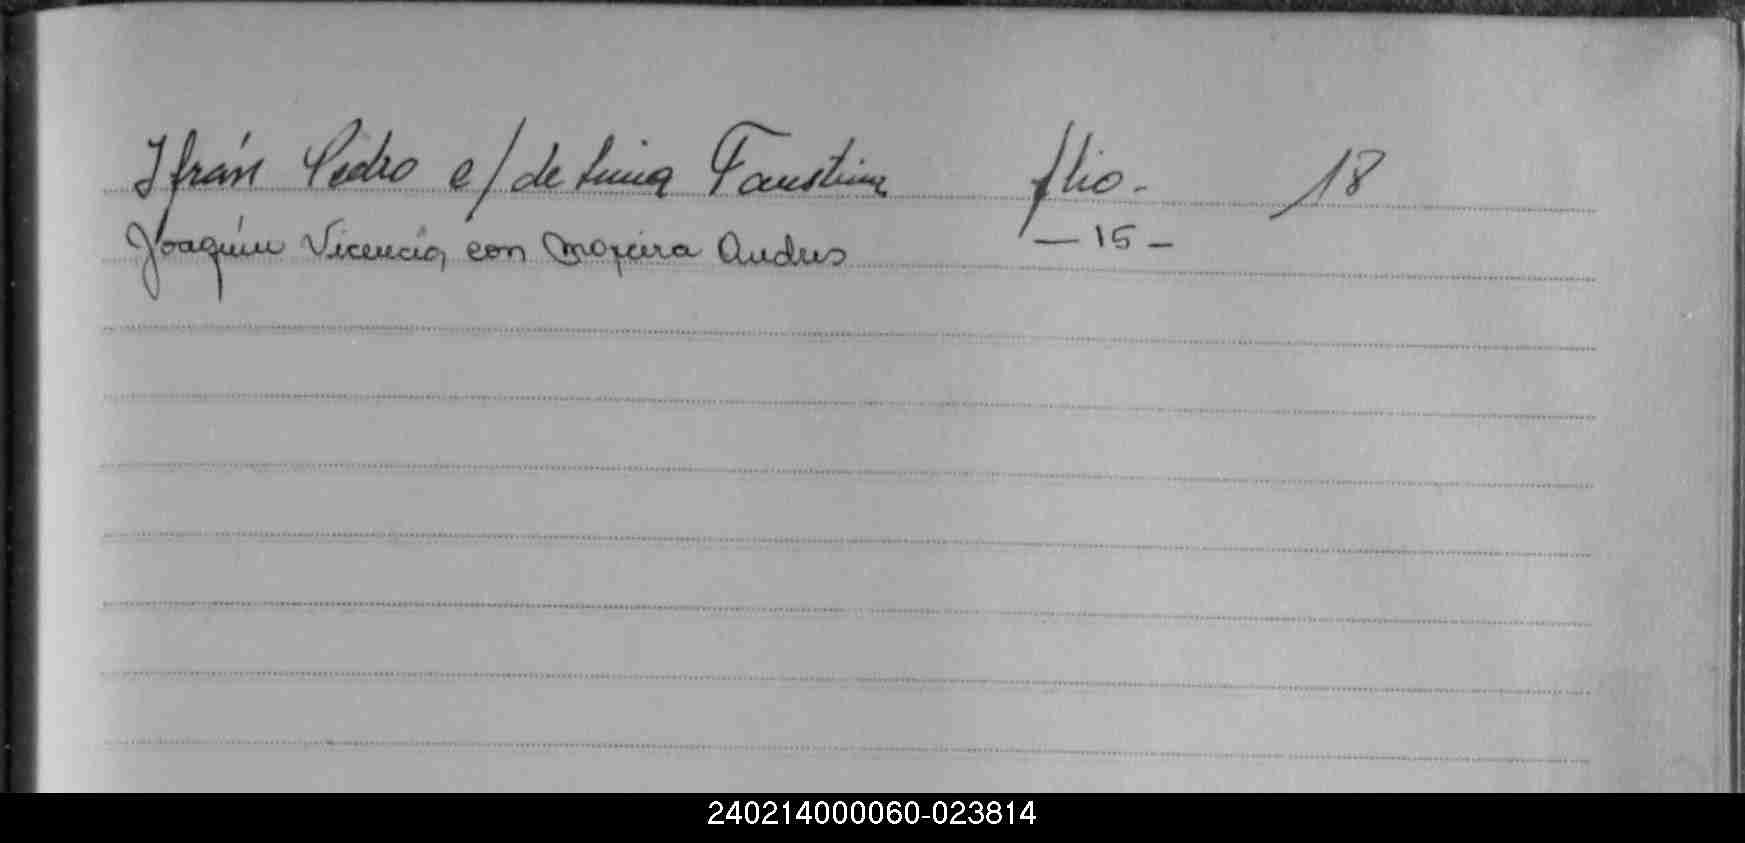 Ifrán Pedro c/ de Lima Faustina flio. 18
Joaquín Vicencia con Moreira Andres — 15 —
240214000060-023814